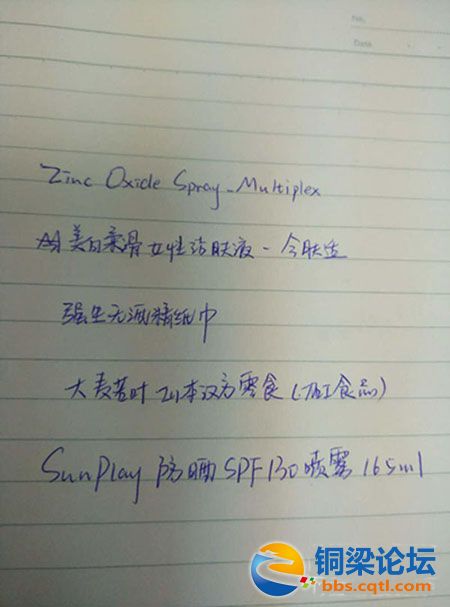 No.
Date
Zinc Oxide Spray-Multiplex
美白柔滑女性洁肤液-今肤洁
强生无酒精纸巾
大麦若叶 山本汉方零食(加工食品)
SunPlay 防晒SPF130喷雾165ml
铜梁论坛
bbs.cqtl.com